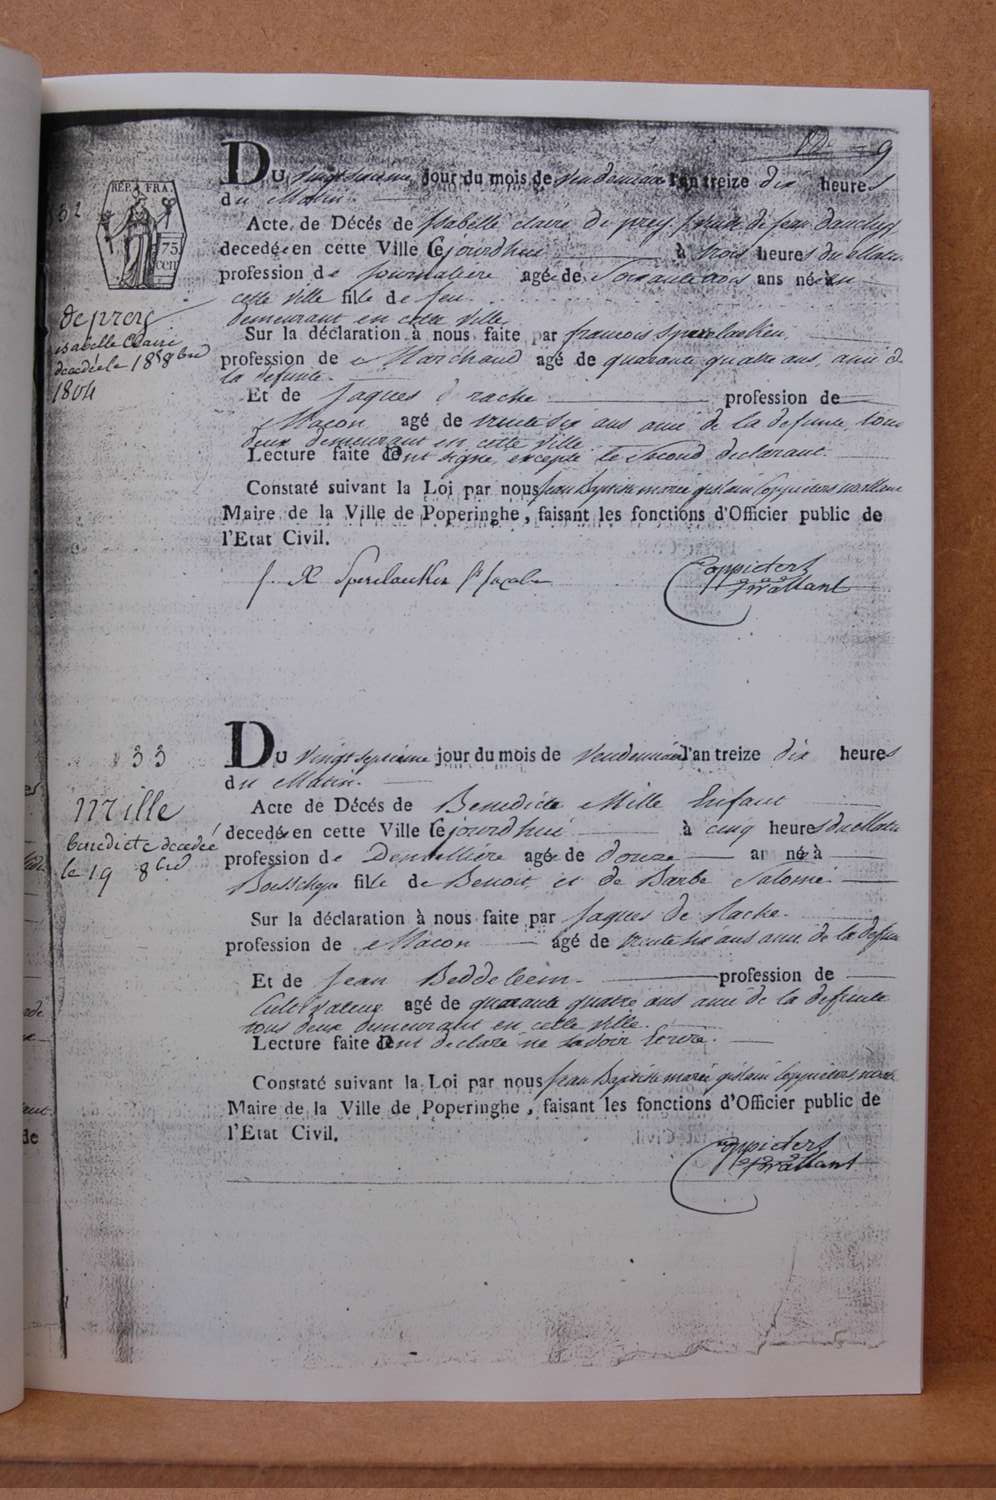 9
DU vingt sixieme jour du mois de Vendemiaire l'an treize dix heures
du Matin.
Acte de Décés de Isabelle claire de prey, de Jean
decedée en cette Ville Cejourdhui à trois heures du Matin
profession de Journaliere agé de Soixante trois ans née en
cette ville fille de feu
demeurant en cette ville
Sur la déclaration à nous faite par francois
profession de Marchand agé de quarante quatre ans, ami de
la defunte.
Et de Jaques profession de
Macon agé de trente six ans ami de la defunte, tous
deux demeurant en cette ville
Lecture faite de ont signe, excepté le Second declarant.
Constaté suivant la Loi par nous Jean Baptiste marie guislain Coppieters wallant
Maire de la Ville de Poperinghe, faisant les fonctions d'Officier public de
l'Etat Civil.
Coppieters
wallant
REP. FRA.
75
cen
32
deprey
isabelle Claire
decedée le 18 8bre
1804
DU vingt septieme jour du mois de Vendemiaire l'an treize dix heures
du Matin.
Acte de Décés de Benedicte Mille Enfant
decedée en cette Ville Cejourdhui à cinq heures du Matin
profession de Dentelliere agée de douze an né à
Boesschepe fille de Benoit et de Barbe Salomé
Sur la déclaration à nous faite par Jaques de
profession de Macon agé de trente six ans ami de la defunte
Et de Jean profession de
Cultivateur agé de quarante quatre ans ami de la defunte
tous deux demeurant en cette ville.
Lecture faite de ont declaré ne savoir Ecrire.
Constaté suivant la Loi par nous Jean Baptiste marie guislain Coppieters
Maire de la Ville de Poperinghe, faisant les fonctions d'Officier public de
l'Etat Civil.
Coppieters
wallant
33
Mille
benedicte decedée
le 19 8bre